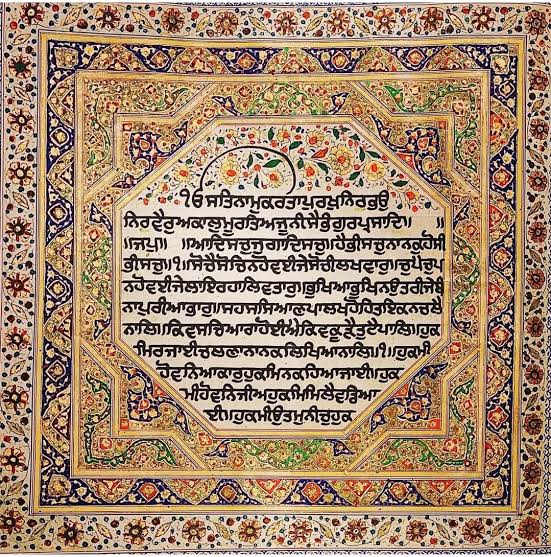 ੴਸਤਿਨਾਮੁਕਰਤਾਪੁਰਖੁਨਿਰਭਉ
ਨਿਰਵੈਰੁਅਕਾਲਮੂਰਤਿਅਜੂਨੀਸੈਭੰਗੁਰਪ੍ਰਸਾਦਿ॥ ॥
॥ਜਪੁ॥ ॥ਆਦਿਸਚੁਜੁਗਾਦਿਸਚੁ॥ਹੈਭੀਸਚੁਨਾਨਕਹੋਸੀ
ਭੀਸਚੁ॥੧॥ਸੋਚੈਸੋਚਿਨਹੋਵਈਜੇਸੋਚੀਲਖਵਾਰ॥ਚੁਪੈਚੁਪ
ਨਹੋਵਈਜੇਲਾਇਰਹਾਲਿਵਤਾਰ॥ਭੁਖਿਆਭੁਖਿਨਉਤਰੀਜੇਬੰ
ਨਾਪੁਰੀਆਭਾਰ॥ਸਹਸਸਿਆਣਪਾਲਖਹੋਹਿਤਇਕਨਚਲੈ
ਨਾਲਿ॥ਕਿਵਸਚਿਆਰਾਹੋਈਐਕਿਵਕੂੜੈਤੁਟੈਪਾਲਿ॥ਹੁਕ
ਮਿਰਜਾਈਚਲਣਾਨਾਨਕਲਿਖਿਆਨਾਲਿ॥੧॥ਹੁਕਮੀ
ਹੋਵਨਿਆਕਾਰਹੁਕਮਿਨਕਹਿਆਜਾਈ॥ਹੁਕ
ਮੀਹੋਵਨਿਜੀਅਹੁਕਮਿਮਿਲੈਵਡਿਆ
ਈ॥ਹੁਕਮੀਉਤਮੁਨੀਚੁਹੁਕ